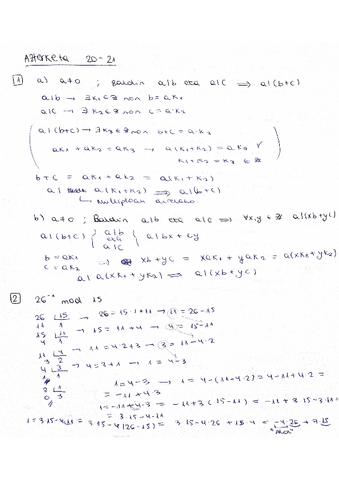 AZTERKETA 20-21
1 a) a≠0 ; Baldin a|b eta a|c ⟹ a|(b+c)
a|b → ∃k₁∈ℤ non b=ak₁
a|c → ∃k₂∈ℤ non c=a·k₂
a|(b+c) → ∃k₃∈ℤ non b+c = a·k₃
ak₁ + ak₂ = ak₃ → a(k₁+k₂) = ak₃ ✓
k₁+k₂ = k₃ ∈ ℤ
b+c = ak₁ + ak₂ = a(k₁+k₂)
a| a(k₁+k₂) ⟹ a|(b+c)
b) a≠0 ; Baldin a|b eta a|c ⟹ ∀x,y ∈ ℤ a|(xb+yc)
a|(b+c) { a|b eta a|c } a|bx + cy
b = ak₁
c = ak₂ ⟹ xb+yc = xak₁ + yak₂ = a(xk₁+yk₂)
a| a(xk₁+yk₂) ⟹ a|(xb+yc)
2 26⁻¹ mod 15
26 | 15 → 26=15·1+11 → 11=26-15
11 1
15 | 11 → 15=11+4 → 4=15-11
4 1
11 | 4 → 11=4·2+3 → 3=11-4·2
3 2
4 | 3 → 4=3+1 → 1=4-3
1 1
3 | 1
0 3
1=4-3 → 1=4-(11-4·2)=4-11+4·2=
=-11+4·3
1=-11+4·3 = -11+3(15-11) = -11+3·15-3·11
= 3·15-4·11
1=3·15-4·11 = 3·15-4(26-15) = 3·15-4·26+15·4 = -4·26+7·15